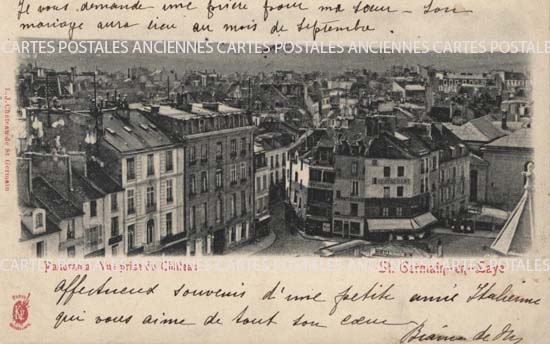 Je vous demande une prière pour ma sœur – Son
mariage aura lieu au mois de Septembre.
CARTES POSTALES ANCIENNES CARTES POSTALES ANCIENNES CARTES POSTALES ANCIENNES
T. J. Château de St Germain
Panorama Vue prise du Château
St. Germain-en-Laye
Affectueux souvenir d'une petite amie Italienne
qui vous aime de tout son cœur
PARIS
Bianca de